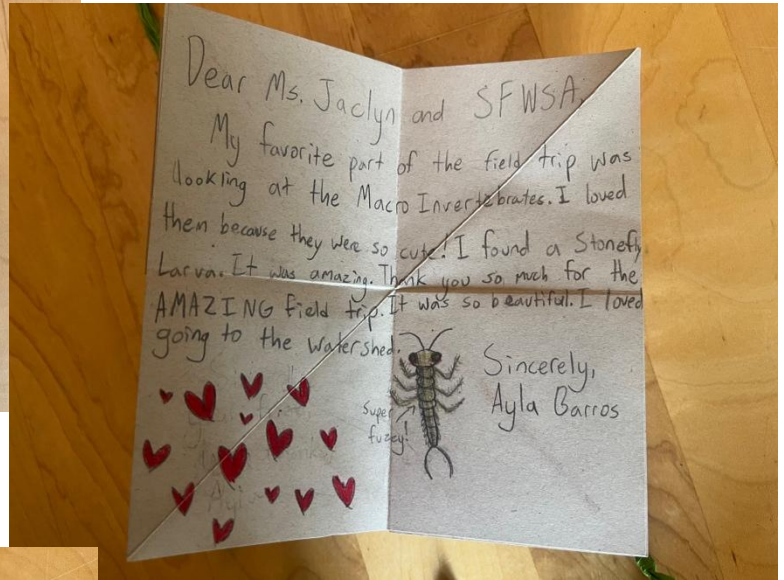 Dear Ms. Jaclyn and SFWSA,
My favorite part of the field trip was
lookling at the Macro Invertebrates. I loved
them because they were so cute! I found a Stonefly
Larva. It was amazing. Thank you so much for the
AMAZING field trip. It was so beautiful. I loved
going to the watershed.
Super
fuzzy!
Sincerely,
Ayla Barros